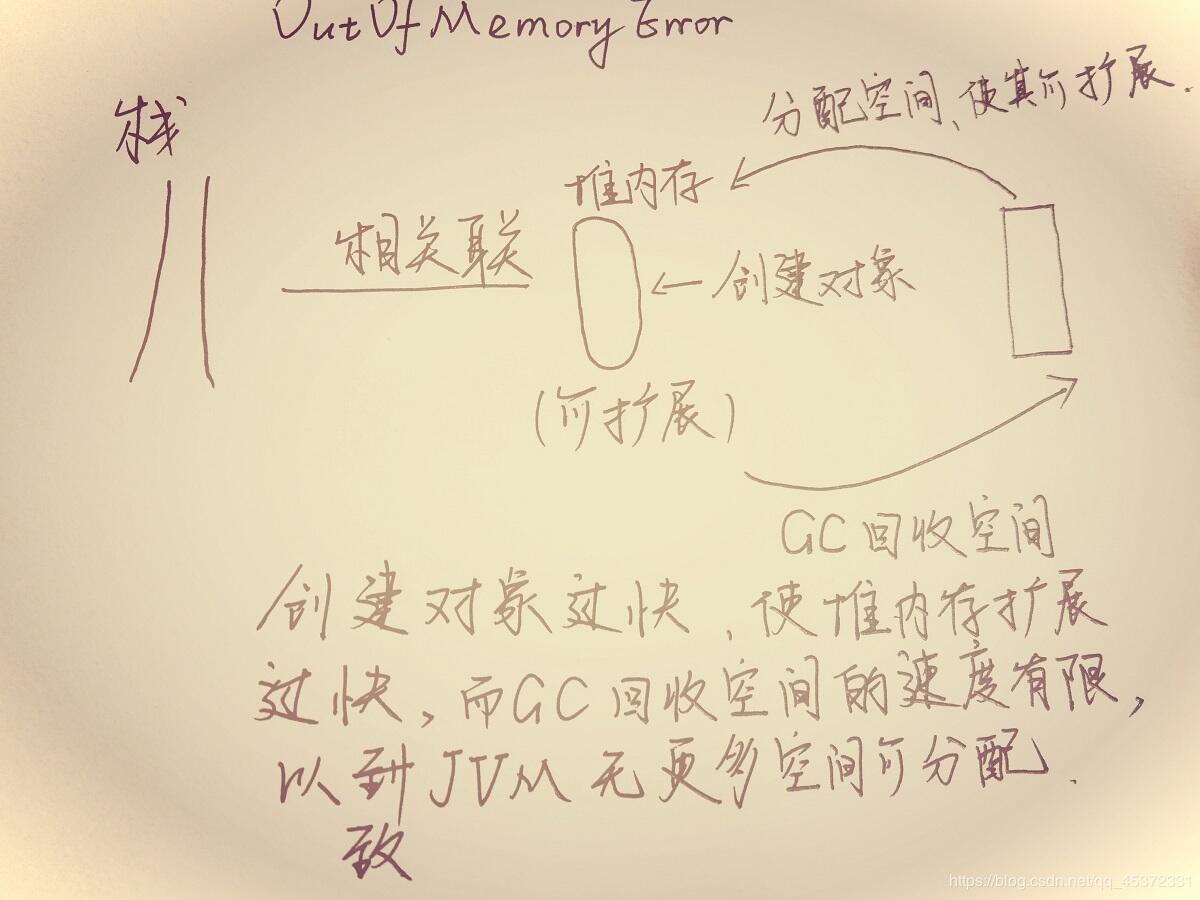 OutOfMemory Error
分配空间、使其可扩展.
栈
堆内存
相关联
←创建对象
(可扩展)
GC 回收空间
创建对象过快，使堆内存扩展
过快，而GC回收空间的速度有限，
以到JVM无更多空间可分配.
致
https://blog.csdn.net/qq_45372331